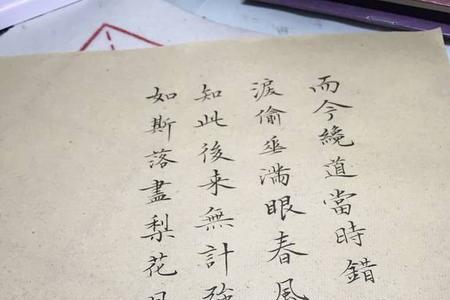 而今纔道當時錯
淚偷垂滿眼春風
知此後来無計強
如斯落盡梨花月